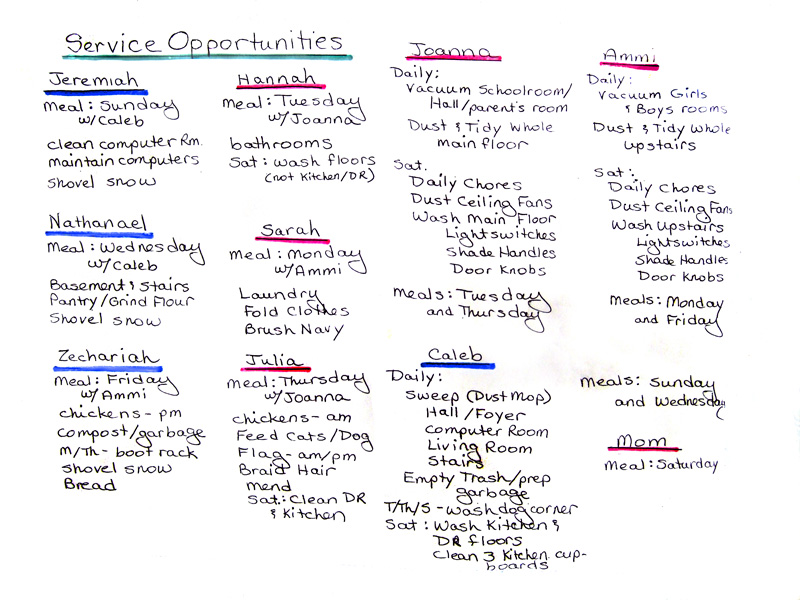 Service Opportunities
Jeremiah
Meal: Sunday
w/Caleb
clean computer Rm.
maintain computers
shovel snow
Nathanael
Meal: Wednesday
w/Caleb
Basement & stairs
Pantry/Grind Flour
Shovel snow
Zechariah
Meal: Friday
w/Ammi
chickens - pm
compost/garbage
M/Th - boot rack
shovel snow
Bread
Hannah
Meal: Tuesday
w/Joanna
bathrooms
Sat: wash floors
(not Kitchen/DR)
Sarah
Meal: Monday
w/Ammi
Laundry
Fold Clothes
Brush Navy
Julia
Meal: Thursday
w/Joanna
chickens - am
Feed Cats/Dog
Flag - am/pm
Braid Hair
mend
Sat.: Clean DR
& Kitchen
Joanna
Daily:
Vacuum Schoolroom/
Hall/parent's room
Dust & Tidy Whole
main floor
Sat.
Daily Chores
Dust Ceiling Fans
Wash Main Floor
Lightswitches
Shade Handles
Door Knobs
Meals: Tuesday
and Thursday
Caleb
Daily:
Sweep (Dust Mop)
Hall/Foyer
Computer Room
Living Room
Stairs
Empty Trash/prep
garbage
T/Th/S - Wash dog corner
Sat: Wash Kitchen &
DR floors
Clean 3 Kitchen cup-
boards
Meals: Sunday
and Wednesday
Ammi
Daily:
Vacuum Girls
& Boys rooms
Dust & Tidy Whole
upstairs
Sat:
Daily Chores
Dust Ceiling Fans
Wash Upstairs
Lightswitches
Shade Handles
Door Knobs
Meals: Monday
and Friday
Mom
Meal: Saturday